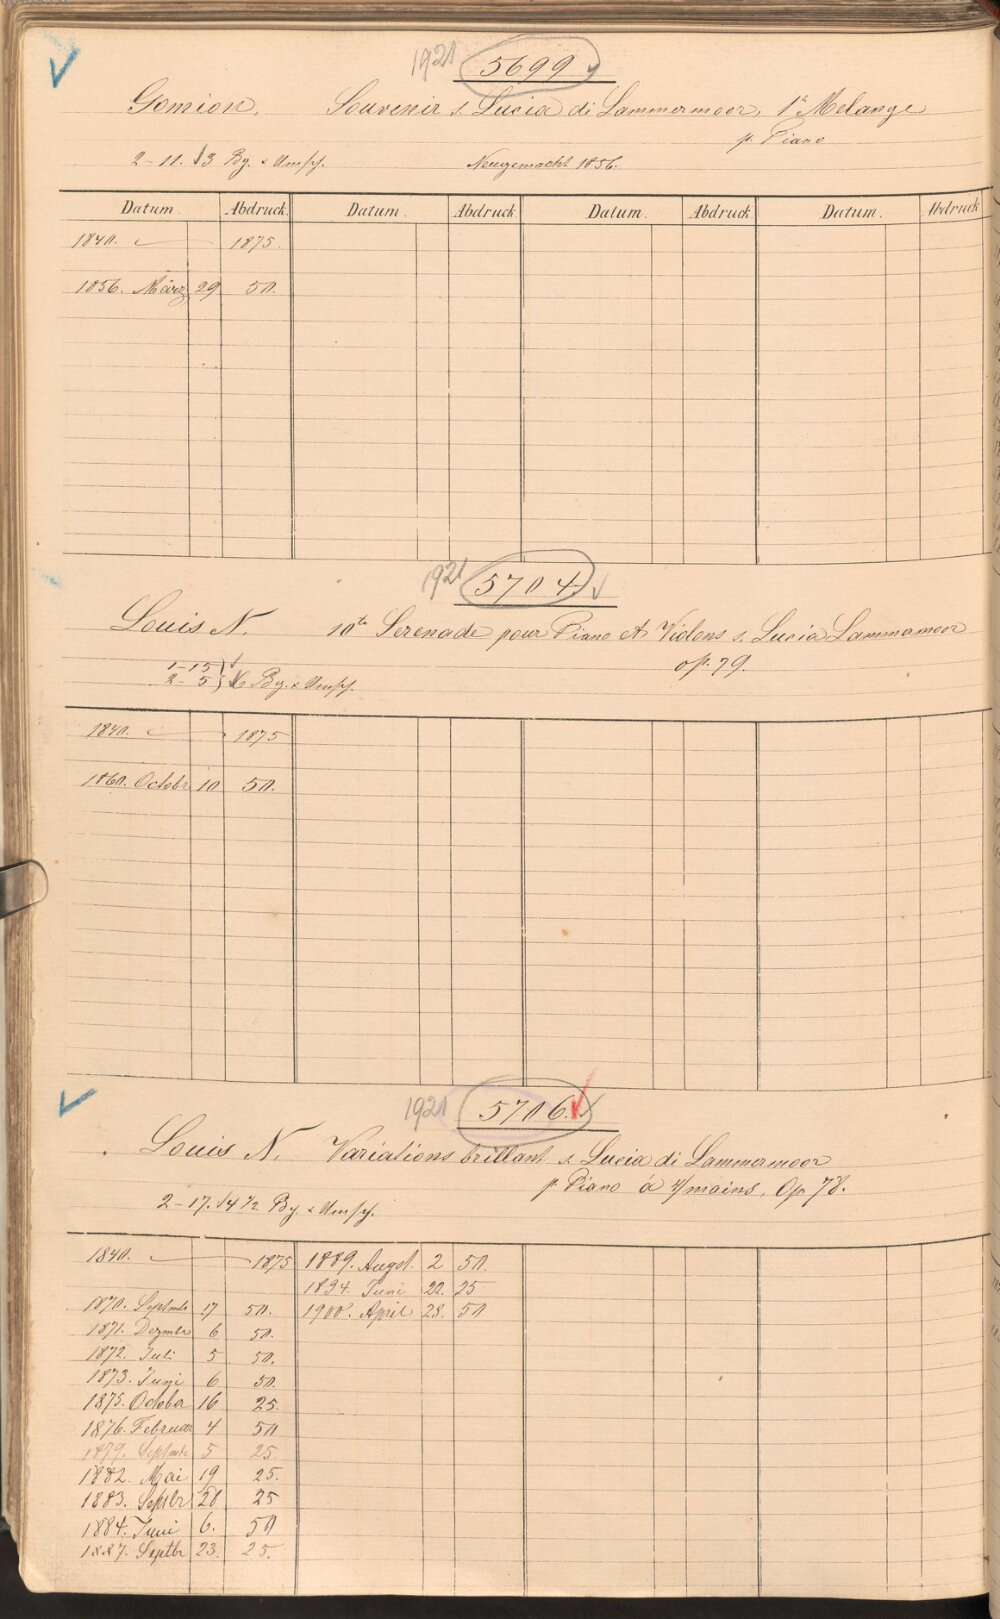 1921 5699
Gomion. Souvenir s. Lucia di Lammermoor, 1r Melange
p. Piano
2-11. 3 Bg. & Umsch. Neugemacht 1856.
Datum. Abdruck. Datum. Abdruck Datum. Abdruck Datum. Abdruck
1840. — 1875.
1856. März 29 50.
1921 5704.
Louis N. 10te Serenade pour Piano et Violons s. Lucia Lammamoor
op. 79.
1-15
2-5 Bg. & Umsch.
1840. — 1875
1860. Octobr 10 50.
1921 5706.
Louis N. Variations brillant s. Lucia di Lammermoor
p. Piano à 4/mains. Op. 78.
2-17. 4 1/2 Bg. & Umsch.
1840. — 1875 1889. Augst. 2 50.
1894. Juni 22. 25
1870. Septmbr 17 50. 1900. April 28. 50
1871. Dezmbr 6 50.
1872. Juli 5 50.
1873. Juni 6 50.
1875. October 16 25.
1876. Februar 4 50
1879. Septmbr 5 25.
1882. Mai 19 25.
1883. Septbr 28 25
1884. Juni 6. 50
1887. Septbr 23. 25.